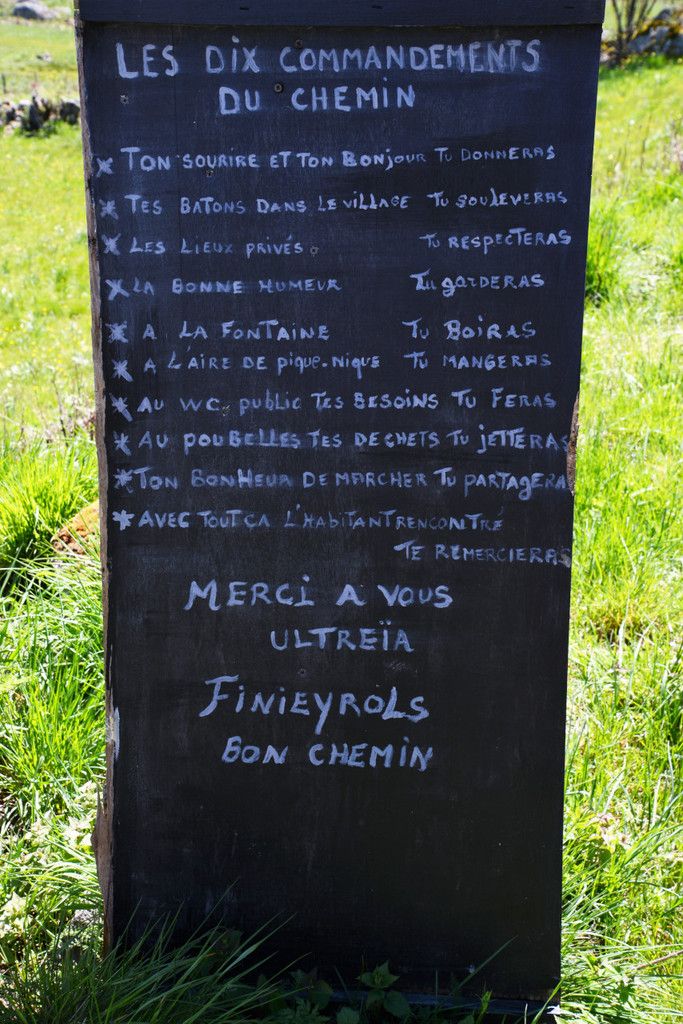 LES DIX COMMANDEMENTS
DU CHEMIN
* TON SOURIRE ET TON BONJOUR TU DONNERAS
* TES BATONS DANS LE VILLAGE TU SOULEVERAS
* LES LIEUX PRIVÉS. TU RESPECTERAS
* LA BONNE HUMEUR TU GARDERAS
* A LA FONTAINE TU BOIRAS
* A L'AIRE DE PIQUE-NIQUE TU MANGERAS
* AU WC PUBLIC TES BESOINS TU FERAS
* AU POUBELLES TES DECHETS TU JETTERAS
* TON BONHEUR DE MARCHER TU PARTAGERA
* AVEC TOUT ÇA L'HABITANT RENCONTRÉ
TE REMERCIERAS
MERCI A VOUS
ULTREÏA
FINIEYROLS
BON CHEMIN